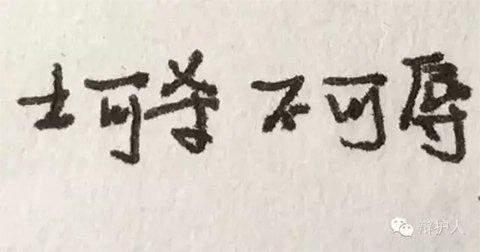 士可杀不可辱
辩护人